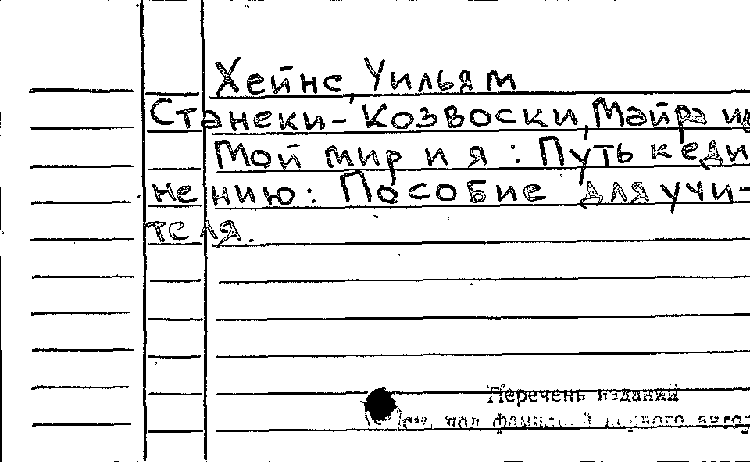 Хейнс, Уильям
Станеки-Козвоски, Майра и
Мой мир и я: Путь к еди
нению: Пособие для учи-
теля.
Перечень изданий
под фамилией первого автор